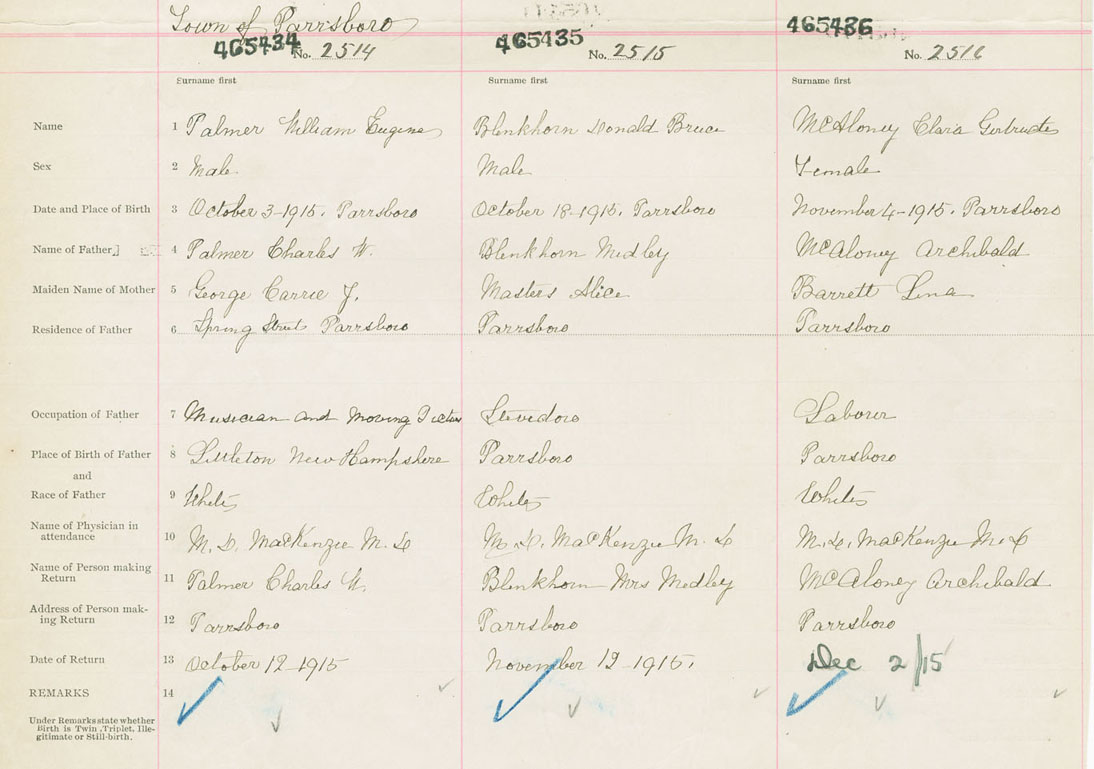 Town of Parrsboro
465434 465435 465436
No. 2514 No. 2515 No. 2516
Surname first Surname first Surname first
Name 1 Palmer William Eugene Blenkhorn Donald Bruce McAloney Clara Gertrude
Sex 2 Male Male Female
Date and Place of Birth 3 October 3-1915. Parrsboro October 18-1915. Parrsboro November 4-1915. Parrsboro
Name of Father 4 Palmer Charles W. Blenkhorn Medley McAloney Archibald
Maiden Name of Mother 5 George Carrie J. Masters Alice Barrett Lena
Residence of Father 6 Spring Street Parrsboro Parrsboro Parrsboro
Occupation of Father 7 Musician and Moving Picture Stevidore Laborer
Place of Birth of Father 8 Littleton New Hampshere Parrsboro Parrsboro
and
Race of Father 9 White White White
Name of Physician in
attendance 10 M. D. MacKenzie M. D M. D. MacKenzie M. D M. D. MacKenzie M. D
Name of Person making
Return 11 Palmer Charles W. Blenkhorn Mrs Medley McAloney Archibald
Address of Person mak-
ing Return 12 Parrsboro Parrsboro Parrsboro
Date of Return 13 October 12-1915 November 12-1915. Dec 2/15
REMARKS 14
Under Remarks state whether
Birth is Twin, Triplet, Ille-
gitimate or Still-birth.